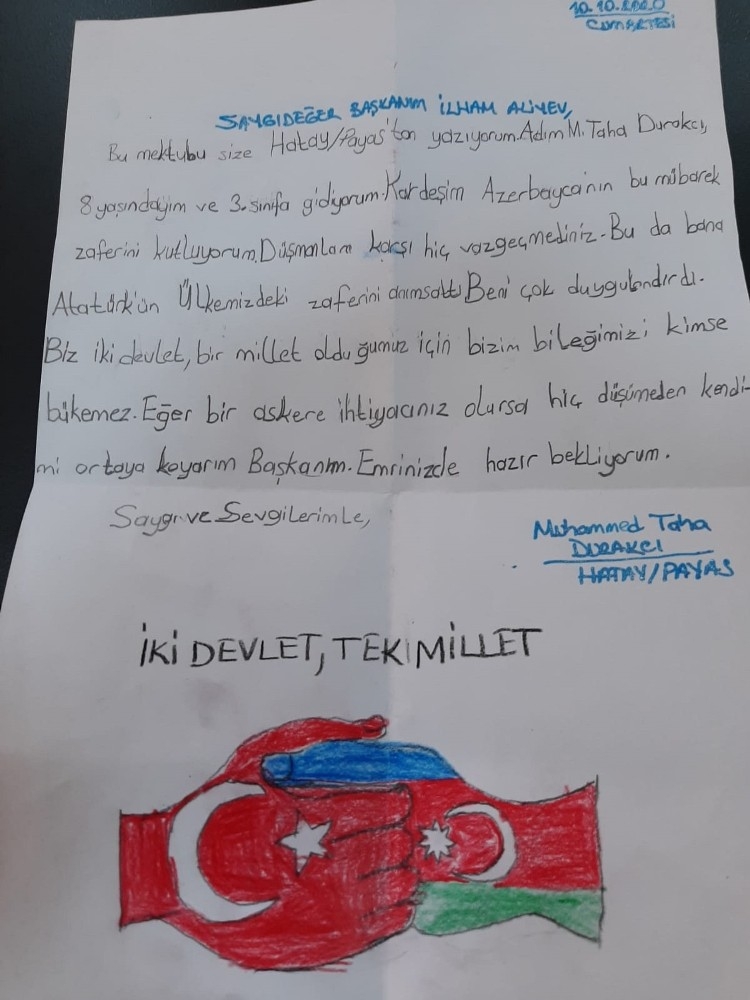 10.10.2020
CUMARTESİ
SAYGIDEĞER BAŞKANIM İLHAM ALİYEV,
Bu mektubu size Hatay/Payas'tan yazıyorum.Adım M.Taha Durakcı,
8 yaşındayım ve 3.sınıfa gidiyorum.Kardeşim Azerbaycanın bu mübarek
zaferini kutluyorum.Düşmanlara karşı hiç vazgeçmediniz.Bu da bana
Atatürk'ün Ülkemizdeki zaferini anımsattı.Beni çok duygulandırdı.
Biz iki devlet, bir millet olduğumuz için bizim bileğimizi kimse
bükemez.Eğer bir askere ihtiyacınız olursa hiç düşümeden kendi-
mi ortaya koyarım Başkanım.Emrinizde hazır bekliyorum.
Saygı ve Sevgilerimle,
Muhammed Taha
DURAKCI
HATAY/PAYAS
İKİ DEVLET, TEK MİLLET